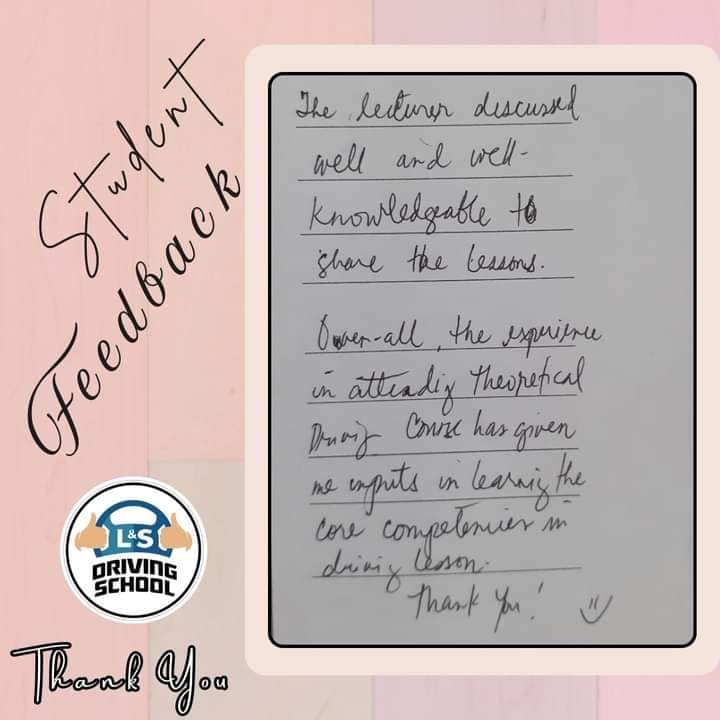 Student
Feedback
The lecturer discussed
well and well-
knowledgeable to
share the lessons.
Over-all, the experience
in attending Theoretical
Driving Course has given
me inputs in learning the
core competencies in
driving lesson.
Thank you!
L&S
DRIVING
SCHOOL
Thank You